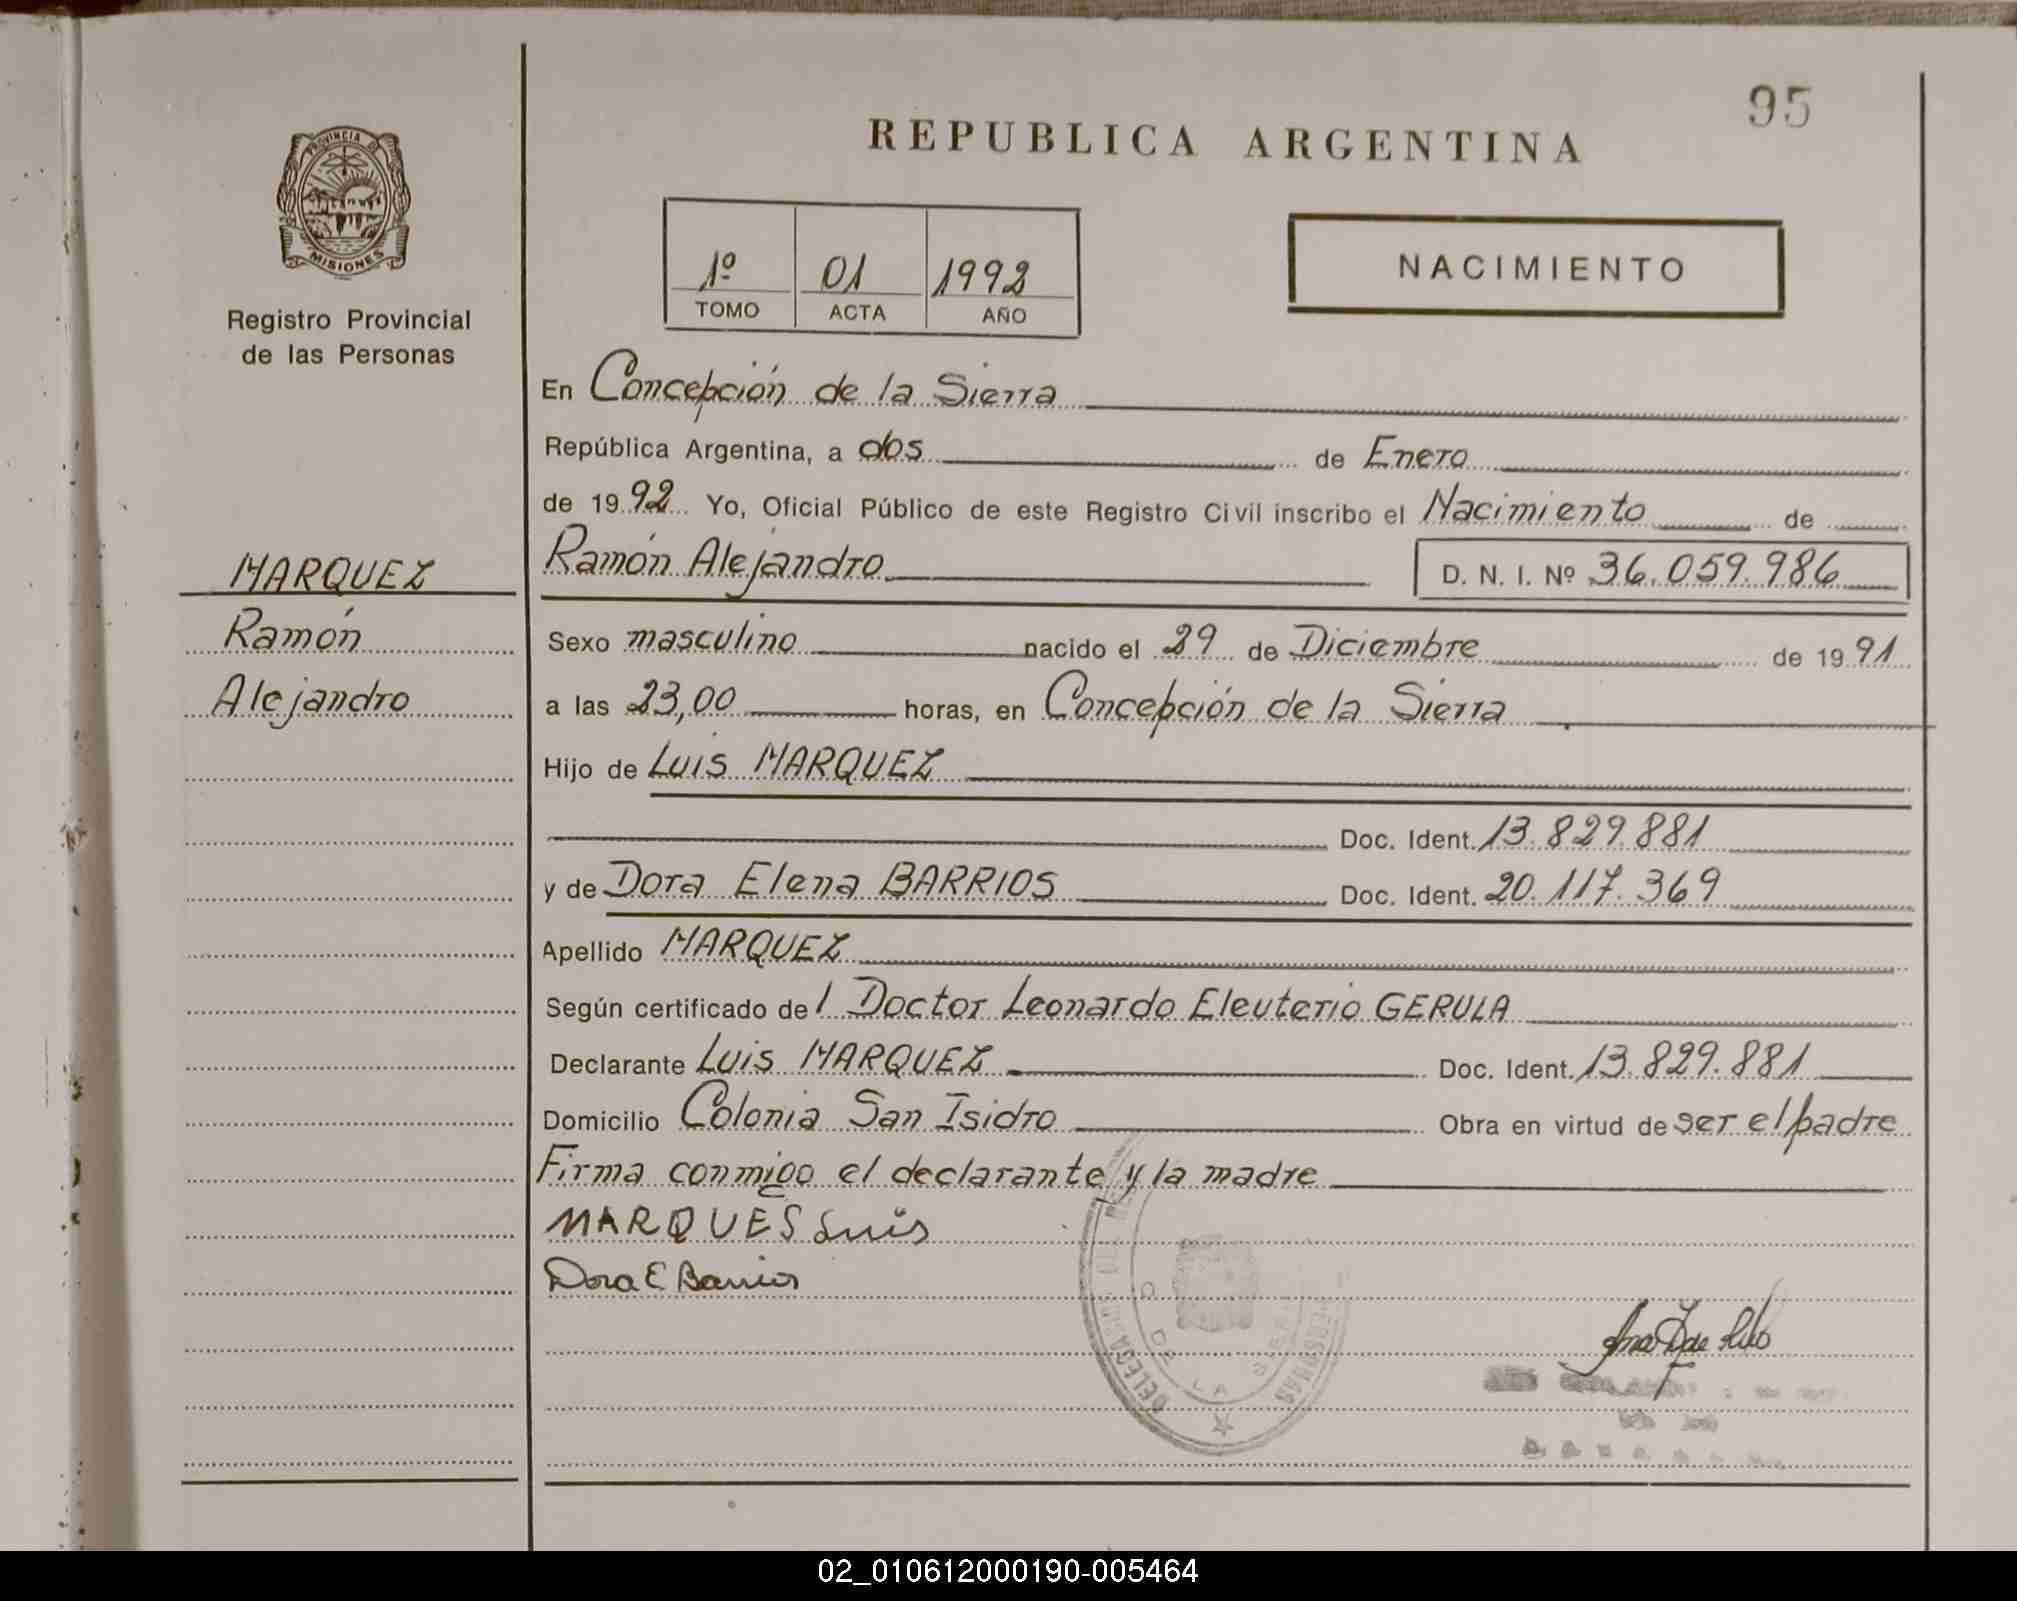 95
REPUBLICA ARGENTINA
PROVINCIA DE
MISIONES
Registro Provincial
de las Personas
1º 01 1992
TOMO ACTA AÑO
NACIMIENTO
En Concepción de la Sierra
República Argentina, a dos de Enero
de 1992 Yo, Oficial Público de este Registro Civil inscribo el Nacimiento de
MARQUEZ
Ramón
Alejandro
Ramón Alejandro D. N. I. Nº 36.059.986
Sexo masculino nacido el 29 de Diciembre de 1991
a las 23,00 horas, en Concepción de la Sierra
Hijo de Luis MARQUEZ
Doc. Ident. 13.829.881
y de Dora Elena BARRIOS Doc. Ident. 20.117.369
Apellido MARQUEZ
Según certificado de l Doctor Leonardo Eleuterio GERULA
Declarante Luis MARQUEZ Doc. Ident. 13.829.881
Domicilio Colonia San Isidro Obra en virtud de ser el padre
Firma conmigo el declarante y la madre
MARQUES Luis
Dora E Barrios
DE LA
02_010612000190-005464